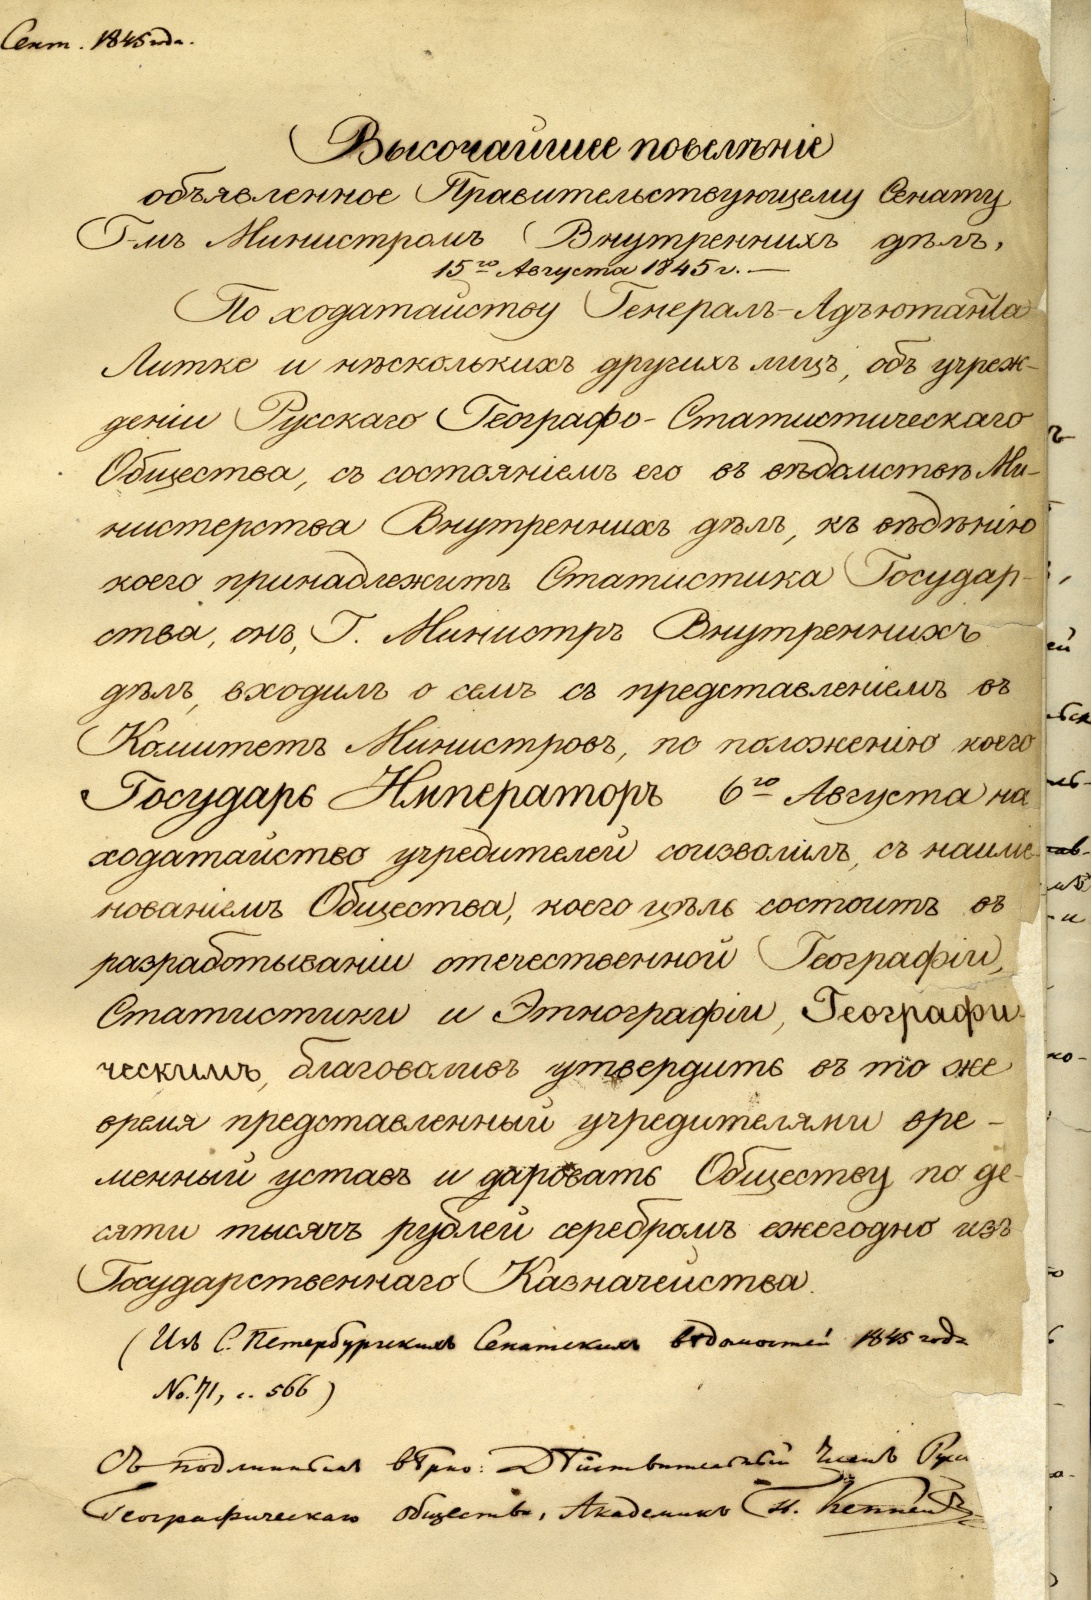 Сент. 1845 года.
Высочайшее повелѣніе
объявленное Правительствующему Сенату
Г-мъ Министромъ Внутреннихъ дѣлъ,
15го Августа 1845 г. —
По ходатайству Генералъ-Адъютанта
Литке и нѣсколькихъ другихъ лицъ, объ учреж-
деніи Русскаго Географо-Статистическаго
Общества, съ состояніемъ его въ вѣдомствѣ Ми-
нистерства Внутреннихъ дѣлъ, къ вѣдѣнію
коего принадлежитъ Статистика Государ-
ства, онъ, Г. Министръ Внутреннихъ
дѣлъ, входилъ о семъ съ представленіемъ въ
Комитетъ Министровъ, по положенію коего
Государь Императоръ 6го Августа на
ходатайство учредителей соизволилъ, съ наиме-
нованіемъ Общества, коего цѣль состоитъ въ
разработываніи отечественной Географіи,
Статистики и Этнографіи, Географи-
ческимъ, благоволивъ утвердить въ то же
время представленный учредителями вре-
менный уставъ и даровать Обществу по де-
сяти тысячъ рублей серебромъ ежегодно изъ
Государственнаго Казначейства.
(Изъ С. Петербургскихъ Сенатскихъ Вѣдомостей 1845 года
No. 71, с. 566)
Съ подлиннымъ вѣрно: Дѣйствительный Членъ Русс
Географическаго общества, Академикъ П. Кеппенъ